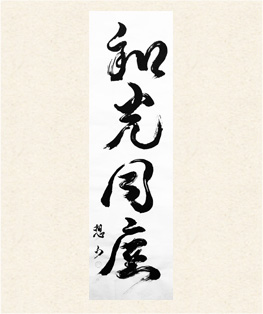 和光同塵
想少